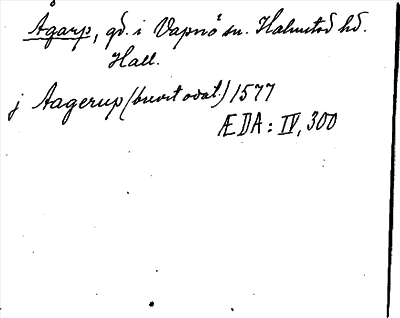 Ågarp, gd. i Vapnö sn. Halmstad hd.
Hall.
j Aagerup (brevet odat.) 1577
ÆDA: IV, 300